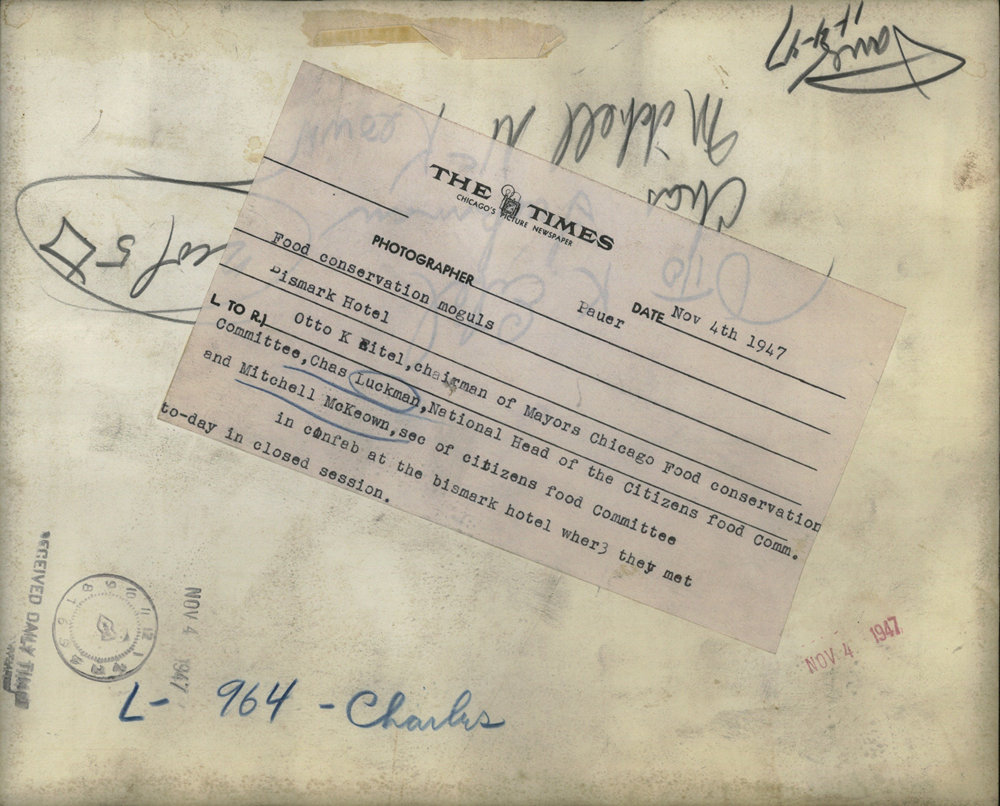 THE TIMES
CHICAGO'S PICTURE NEWSPAPER
PHOTOGRAPHER Pauer DATE Nov 4th 1947
Food conservation moguls
Bismark Hotel
L TO R) Otto K Eitel,chairman of Mayors Chicago Food conservation
Committee,Chas Luckman,National Head of the Citizens food Comm.
and Mitchell McKeown,sec of citizens food Committee
in confab at the bismark hotel wher3 they met
to-day in closed session.
Mitchell
Chas
Otto K
5
RECEIVED DAILY TIMES
NOV 4 1947
NOV 4 1947
L- 964 - Charles